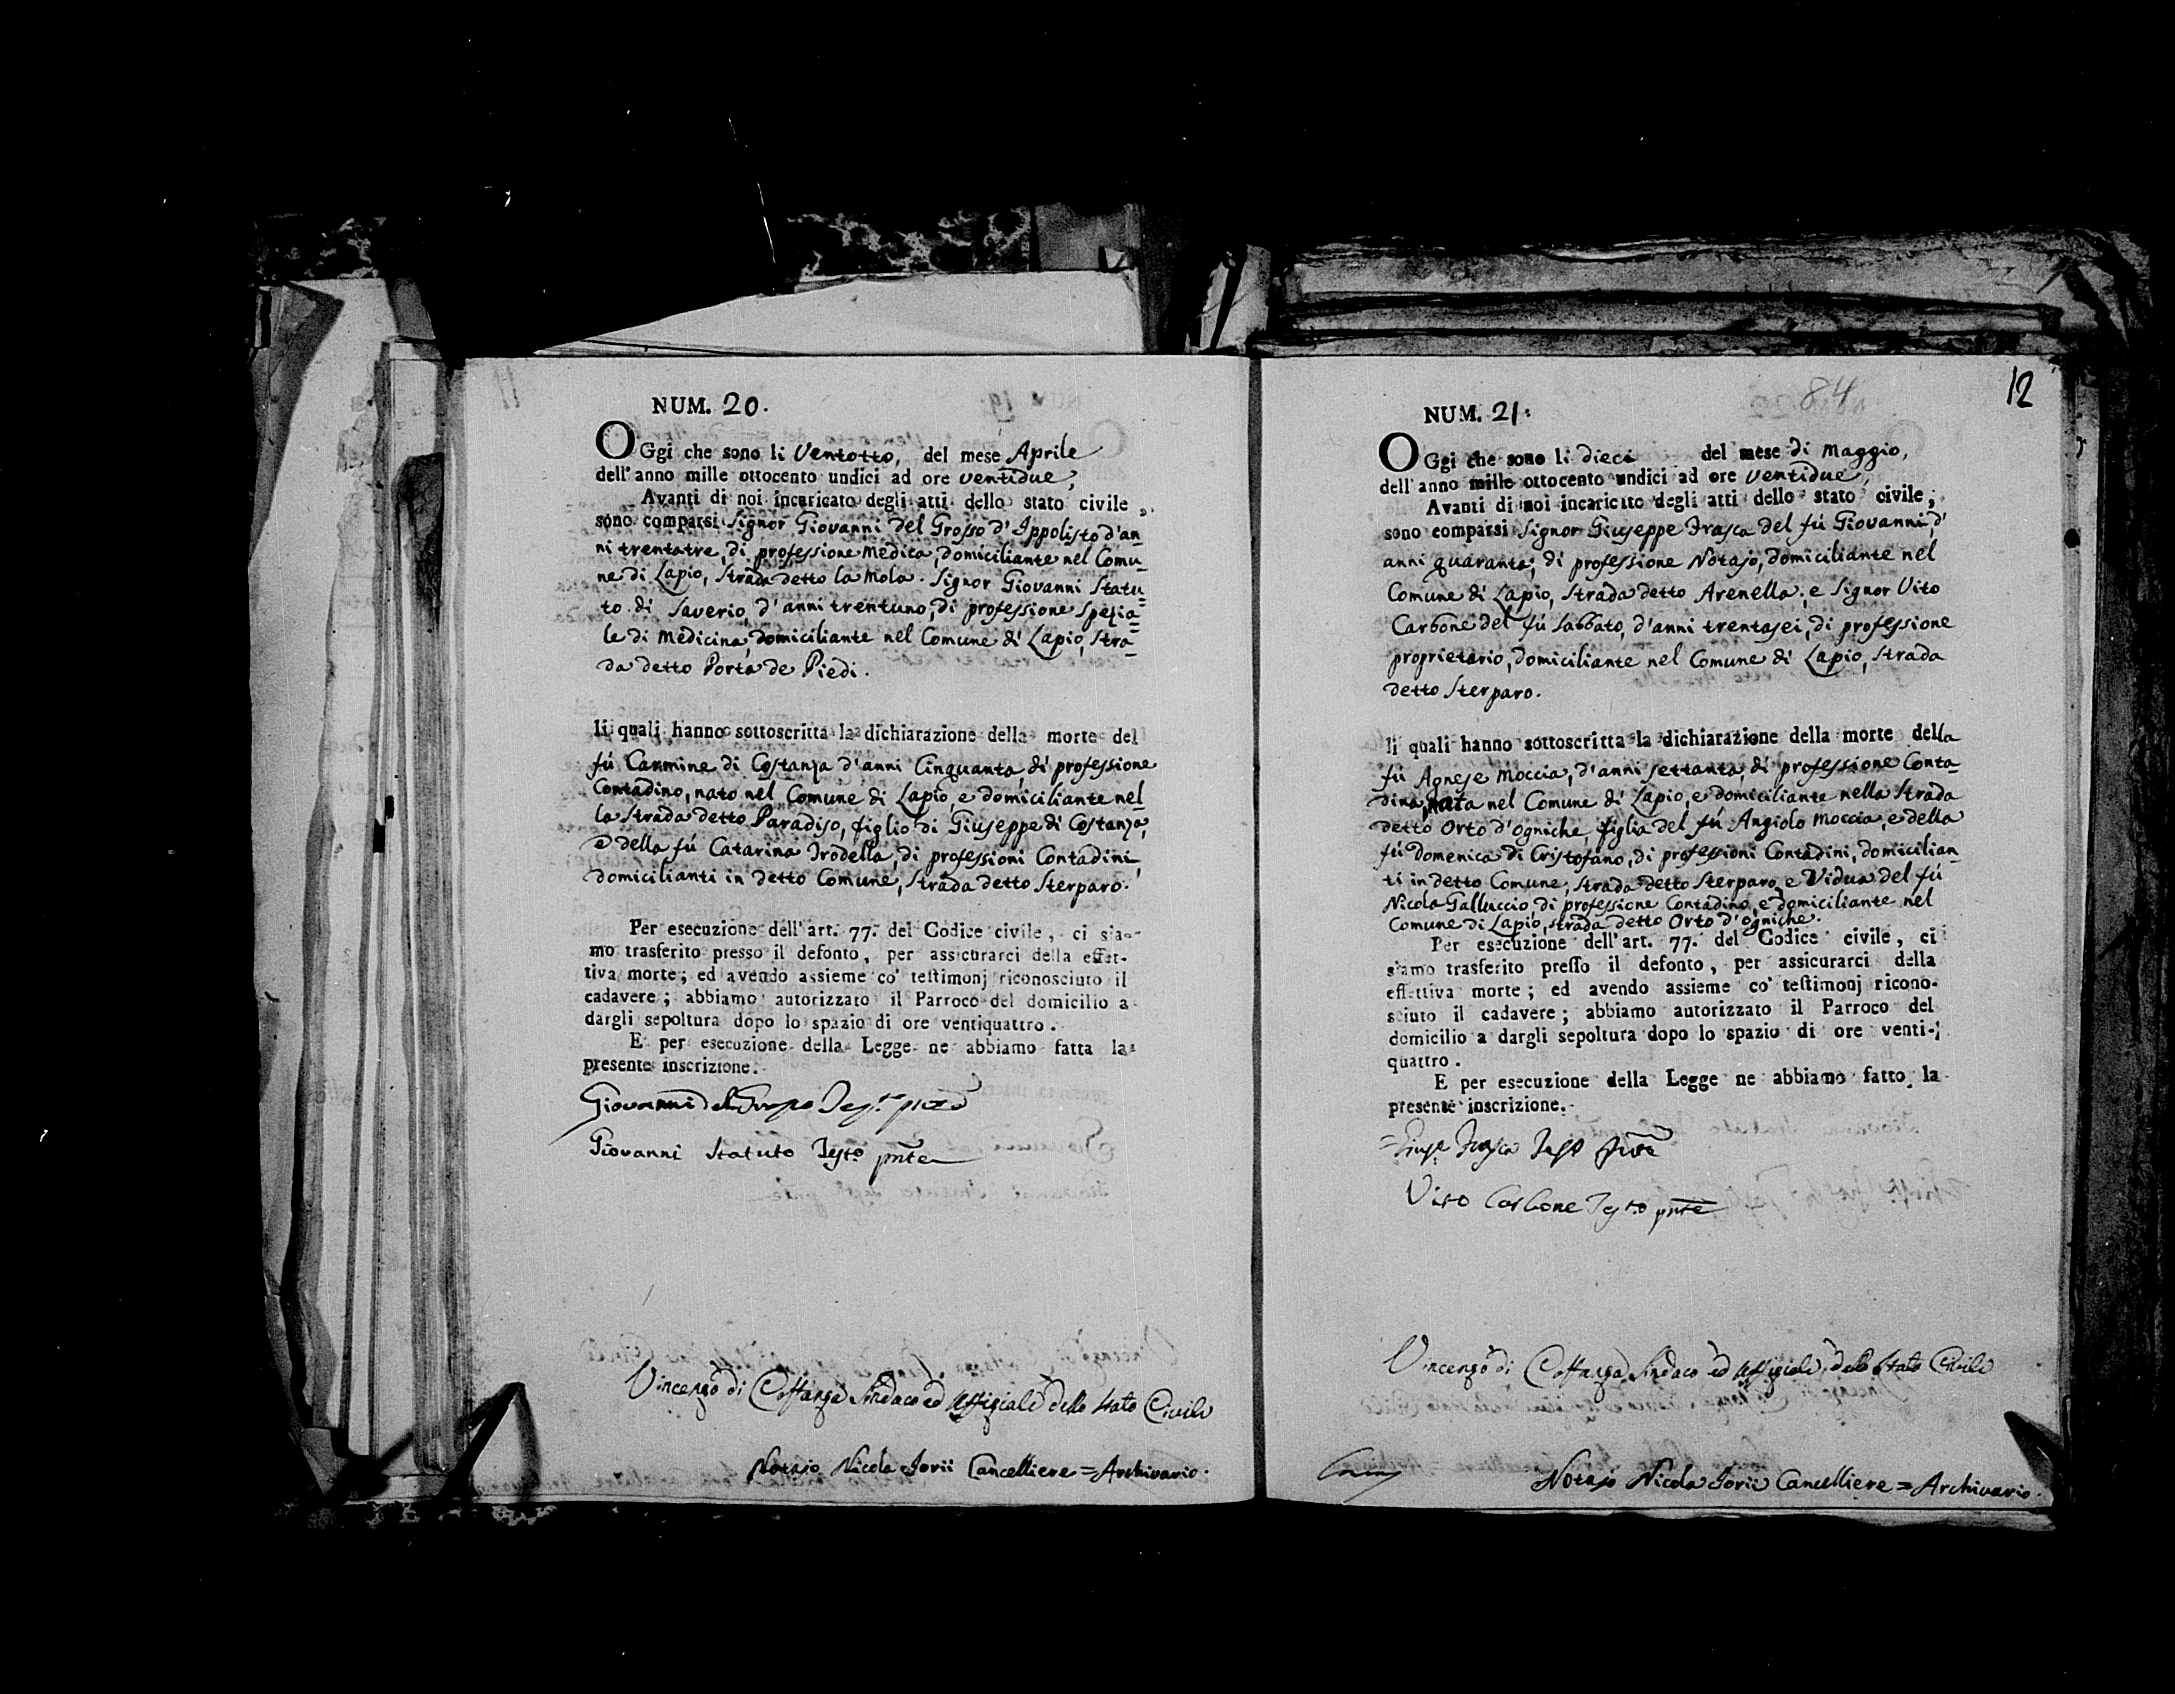 NUM. 20.
OGgi che sono li Ventotto, del mese Aprile
dell' anno mille ottocento undici ad ore ventidue,
Avanti di noi incaricato degli atti dello stato civile,
sono comparsi Signor Giovanni del Grosso d'Ippolisto d'an=
ni trentatre, di professione Medica, domiciliante nel Comu=
ne di Lapio, Strada detto la Mola. Signor Giovanni Statu=
to di Saverio, d'anni trentuno, di professione Spezia=
le di Medicina, domiciliante nel Comune di Lapio, Stra=
da detto Porta de Piedi.
li quali hanno sottoscritta la dichiarazione della morte del
fú Carmine di Costanza d'anni Cinquanta di professione
Contadino, nato nel Comune di Lapio, e domiciliante nel=
la Strada detto Paradiso, figlio di Giuseppe di Costanza,
e della fú Catarina Trodella, di professioni Contadini,
domicilianti in detto Comune, Strada detto Sterparo.
Per esecuzione dell' art. 77. del Codice civile, ci sia-
mo trasferito presso il defonto, per assicurarci della effet-
tiva morte; ed avendo assieme co' testimonj riconosciuto il
cadavere; abbiamo autorizzato il Parroco del domicilio a
dargli sepoltura dopo lo spazio di ore ventiquattro.
E per esecuzione della Legge ne abbiamo fatta la
presente inscrizione.
Giovanni del Grosso
Giovanni Statuto Testo. pnte
Vincenzo di Costanza Sindaco ed Uffiziale dello Stato Civile
Notajo Nicola Jorii Cancelliere = Archivario.
84
12
NUM. 21.
OGgi che sono li dieci del mese di Maggio,
dell' anno mille ottocento undici ad ore ventidue,
Avanti di noi incaricato degli atti dello stato civile,
sono comparsi Signor Giuseppe Frasca del fú Giovanni, d'
anni quaranta, di professione Notajo, domiciliante nel
Comune di Lapio, Strada detto Arenella, e Signor Vito
Carbone del fú Sabbato, d'anni trentasei, di professione
proprietario, domiciliante nel Comune di Lapio, Strada
detto Sterparo.
li quali hanno sottoscritta la dichiarazione della morte della
fú Agnese Moccia, d'anni settanta, di professione Conta=
dina, nata nel Comune di Lapio, e domiciliante nella Strada
detto Orto d'ogniche, figlia del fú Angiolo Moccia, e della
fú Domenica di Cristofano, di professioni Contadini, domicilian=
ti in detto Comune, Strada detto Sterparo, e Vidua del fú
Nicola Galluccio, di professione Contadino, e domiciliante nel
Comune di Lapio, strada detto Orto d'ogniche.
Per esecuzione dell' art. 77. del Codice civile, ci
siamo trasferito presso il defonto, per assicurarci della
effettiva morte; ed avendo assieme co' testimonj ricono-
sciuto il cadavere; abbiamo autorizzato il Parroco del
domicilio a dargli sepoltura dopo lo spazio di ore venti-
quattro.
E per esecuzione della Legge ne abbiamo fatto la
presente inscrizione.
Frasca
Vito Carbone Testo pnte
Vincenzo di Costanza Sindaco ed Uffiziale dello Stato Civile
Notajo Nicola Jorii Cancelliere = Archivario.